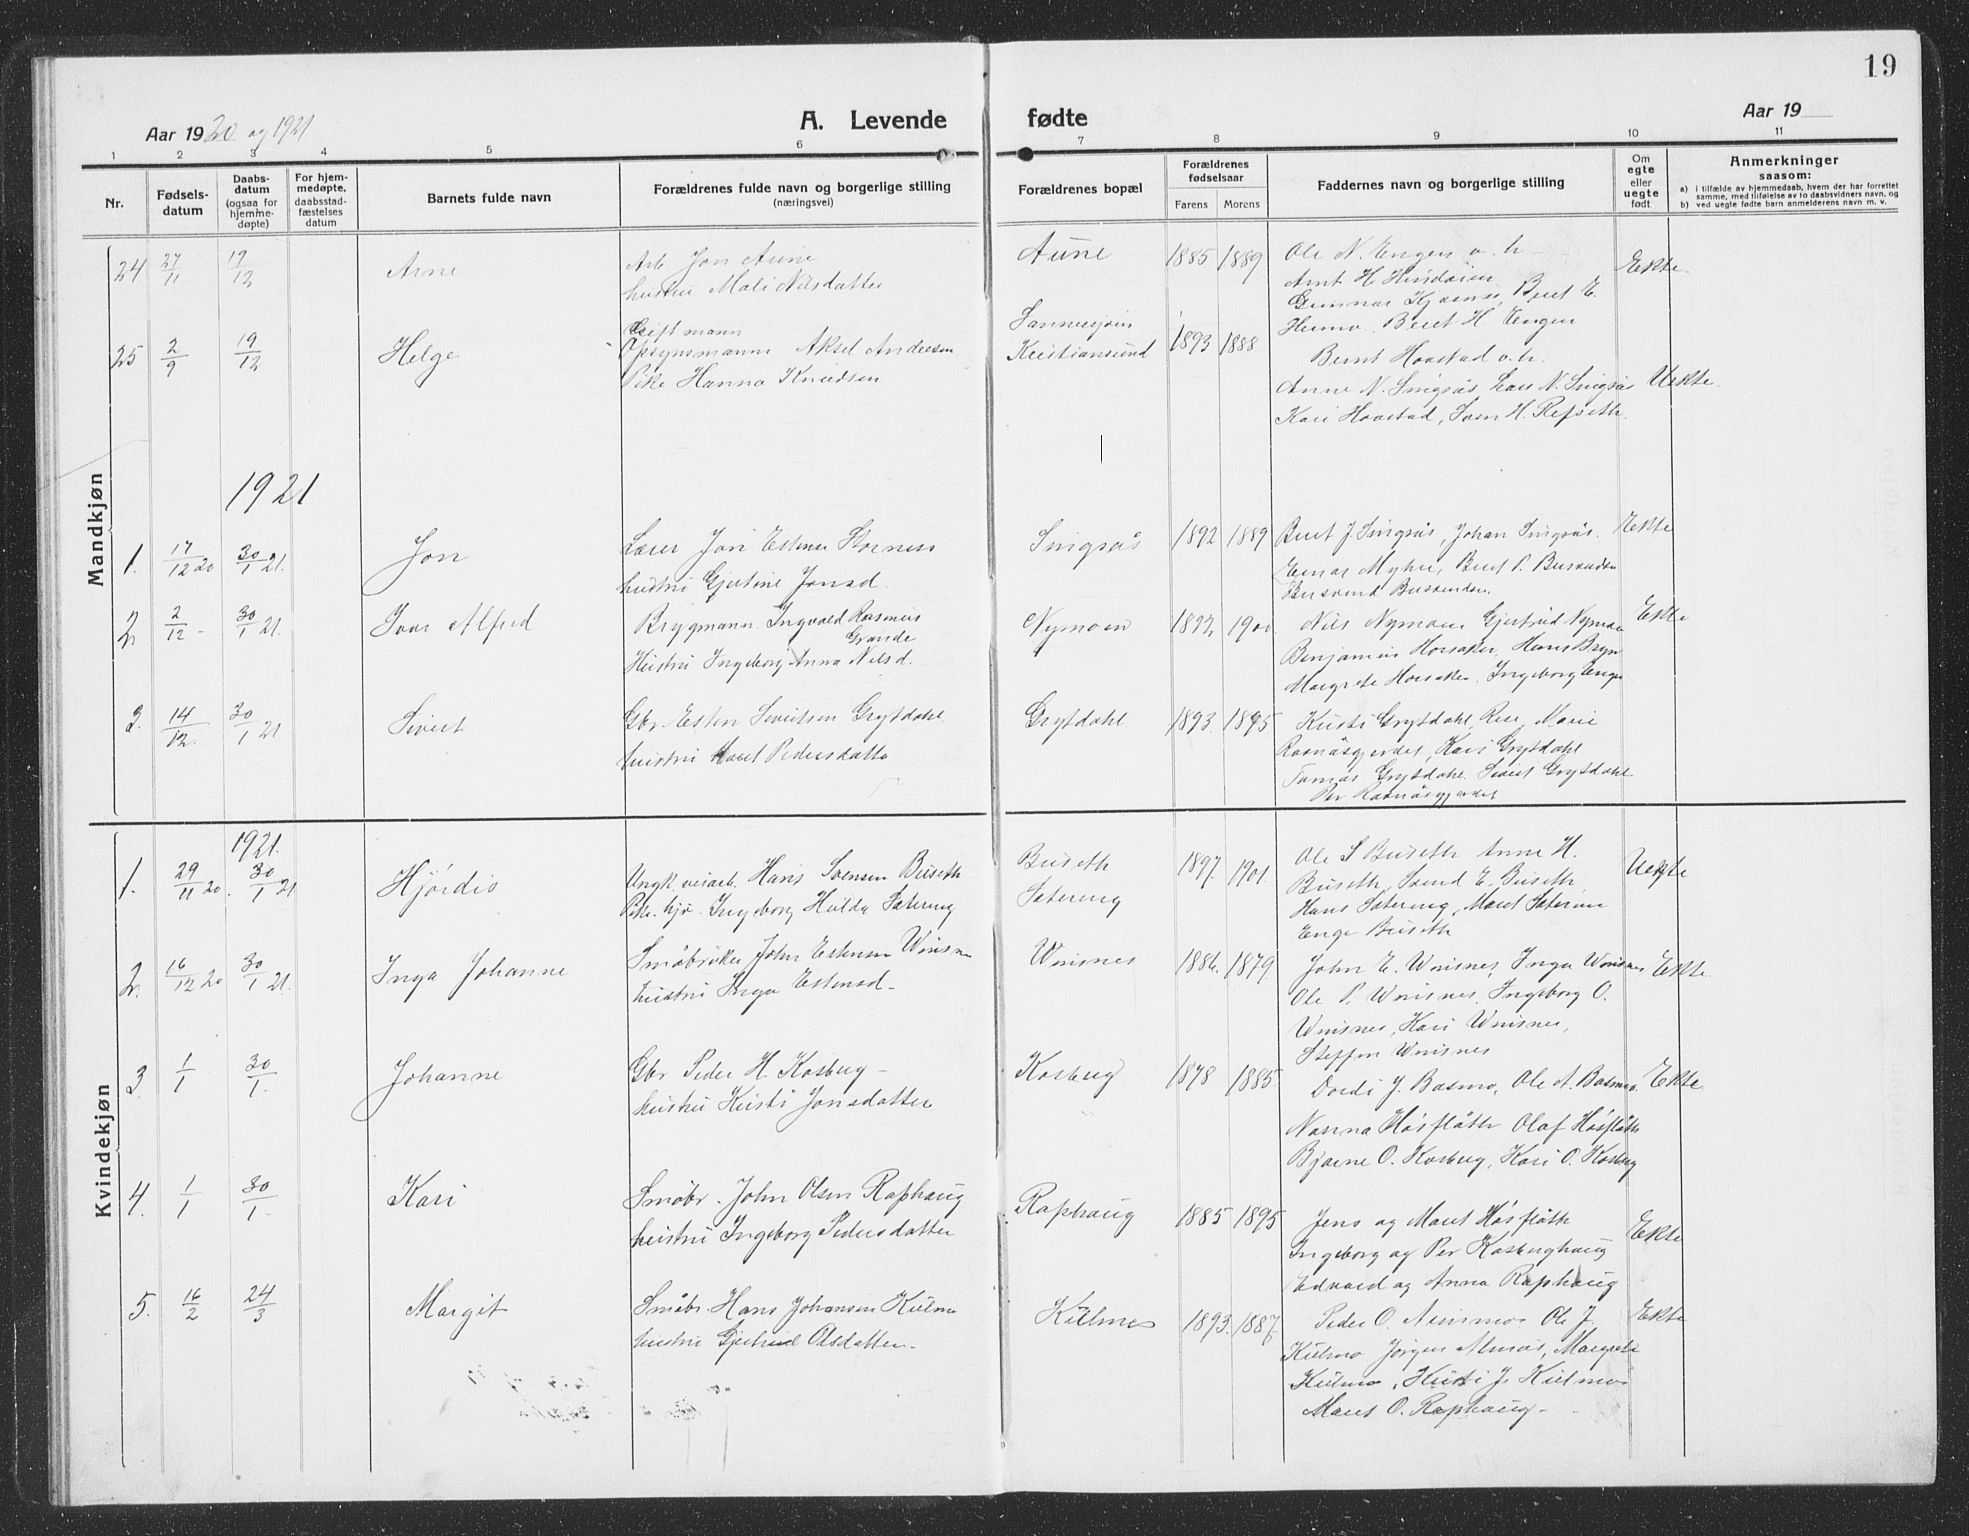 19
Aar 1920 og 1921
A. Levende fødte
Aar 19
1 2 3 4 5 6 7 8 9 10 11
Nr.
Fødsels-
datum
Daabs-
datum
(ogsaa for
hjemme-
døpte)
For hjem-
medøpte,
daabsstad-
fæstelses
datum
Barnets fulde navn
Forældrenes fulde navn og borgerlige stilling
(næringsvei)
Forældrenes bopæl
Forældrenes
fødselsaar
Farens Morens
Faddernes navn og borgerlige stilling
Om
egte
eller
uegte
født
Anmerkninger
saasom:
a) i tilfælde av hjemmedaab, hvem der har forrettet
samme, med tilføielse av to daabsvidners navn, og
b) ved uegte fødte barn anmelderens navn m. v.
Mandkjøn
24 27/11 19/12 Arne
Arb. Jon Aune
hustru Mali Nilsdatter
Aune 1885 1889
Ole N. Engen o. h.
Arnt H.
Gunnar Beret E.
Beret H. Engen
Ekte.
25 2/9 19/12 Helge
Gift mann
Opsynsmann Aksel Andersen
Pike Hanna Knudsen
Kristiansund
1893 1888
Bernt Haastad o. h.
Anne N. Singsås Lars N. Singsås
Kari Haastad, Sven H. Refseth.
Uekte.
1921
1. 17/12 20 30/1 21. Jon
Lærer Jon Estensen Storness
hustru Gjertine Jonsd.
Singsås 1892 1889
Beret J. Singsås, Johan Singsås.
Einar Myhre, Beret P.
Ekte
2. 2/12 - 30/1 21. Ivar Alfred
Brygmann. Ingvald Rasmus
Grande
Hustru Ingeborg Anna Nilsd.
Nymoen 1892 1900
Nils Nymoen Gjertrud Nymoen
Benjamin Horsaker, Hans Bryn
Margrete Horsaker. Ingeborg Engen
Ekte
3. 14/12. 30/1 21 Sivert
Gbr. Esten Sivertsen Grytdahl
hustru Maret Pedersdatter
Grytdahl 1893 1895
Kristi Grytdahl, Marie
Kari Grytdahl
Tomas Grytdahl, Sivert Grytdahl
Per
Kvindekjøn
1921.
1. 29/11 20. 30/1 21 Hjørdis
Ungk. veiarb. Hans Svensen Buseth
Pike. hjv. Ingeborg Hulda Sætering
Buseth
Sætering
1897. 1901.
Ole S Buseth Anne H.
Buseth, Svend E. Buseth,
Hans Sætering, Maret Sætering
Enge Buseth
Uekte
2. 16/12 20 30/1 21. Inga Johanne
Småbruker John Estensen Winsnes
hustru Inga Estensd.
Winsnes 1886. 1879.
John E. Winsnes, Inga Winsnes
Ole P. Winsnes, Ingeborg O.
Winsnes, Kari Winsnes,
Steffen Winsnes
Ekte.
3. 1/1 30/1. Johanne
Gbr. Peder H. Kosberg -
hustru Kristi Jonsdatter
Kosberg 1878 1885.
Dordi J. Basmo, Ole A. Basmo.
Nanna Høsflåth Olaf Høsflåth
Bjarne O. Kosberg, Kari O. Kosberg
Ekte.
4. 1/1 30/1. Kari
Småbr. John Olsen Raphaug
hustru Ingeborg Pedersdatter
Raphaug 1885 1895
Jens og Maret Høsflåth
Ingeborg og Per Kosberghaug
Edvard og Anna Raphaug
Ekte
5. 16/2 24/3 Margit
Småbr. Hans Johansen Kulmo
hustru Gjertrud Olsdatter.
1893. 1887.
Peder O. Ole J.
Kulmo Jørgen Margrete
Kulmo, Kristi J. Kulmo
Maret O. Raphaug.
Ekte